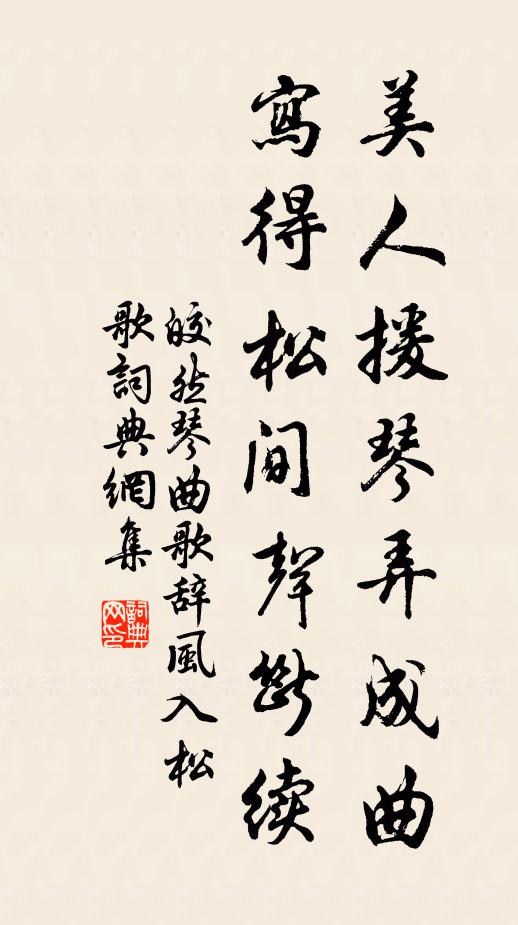 美人援琴弄成曲
寫得松間聲斷续
皎然琴曲歌辞風入松
歌詞典網集
詞典网印